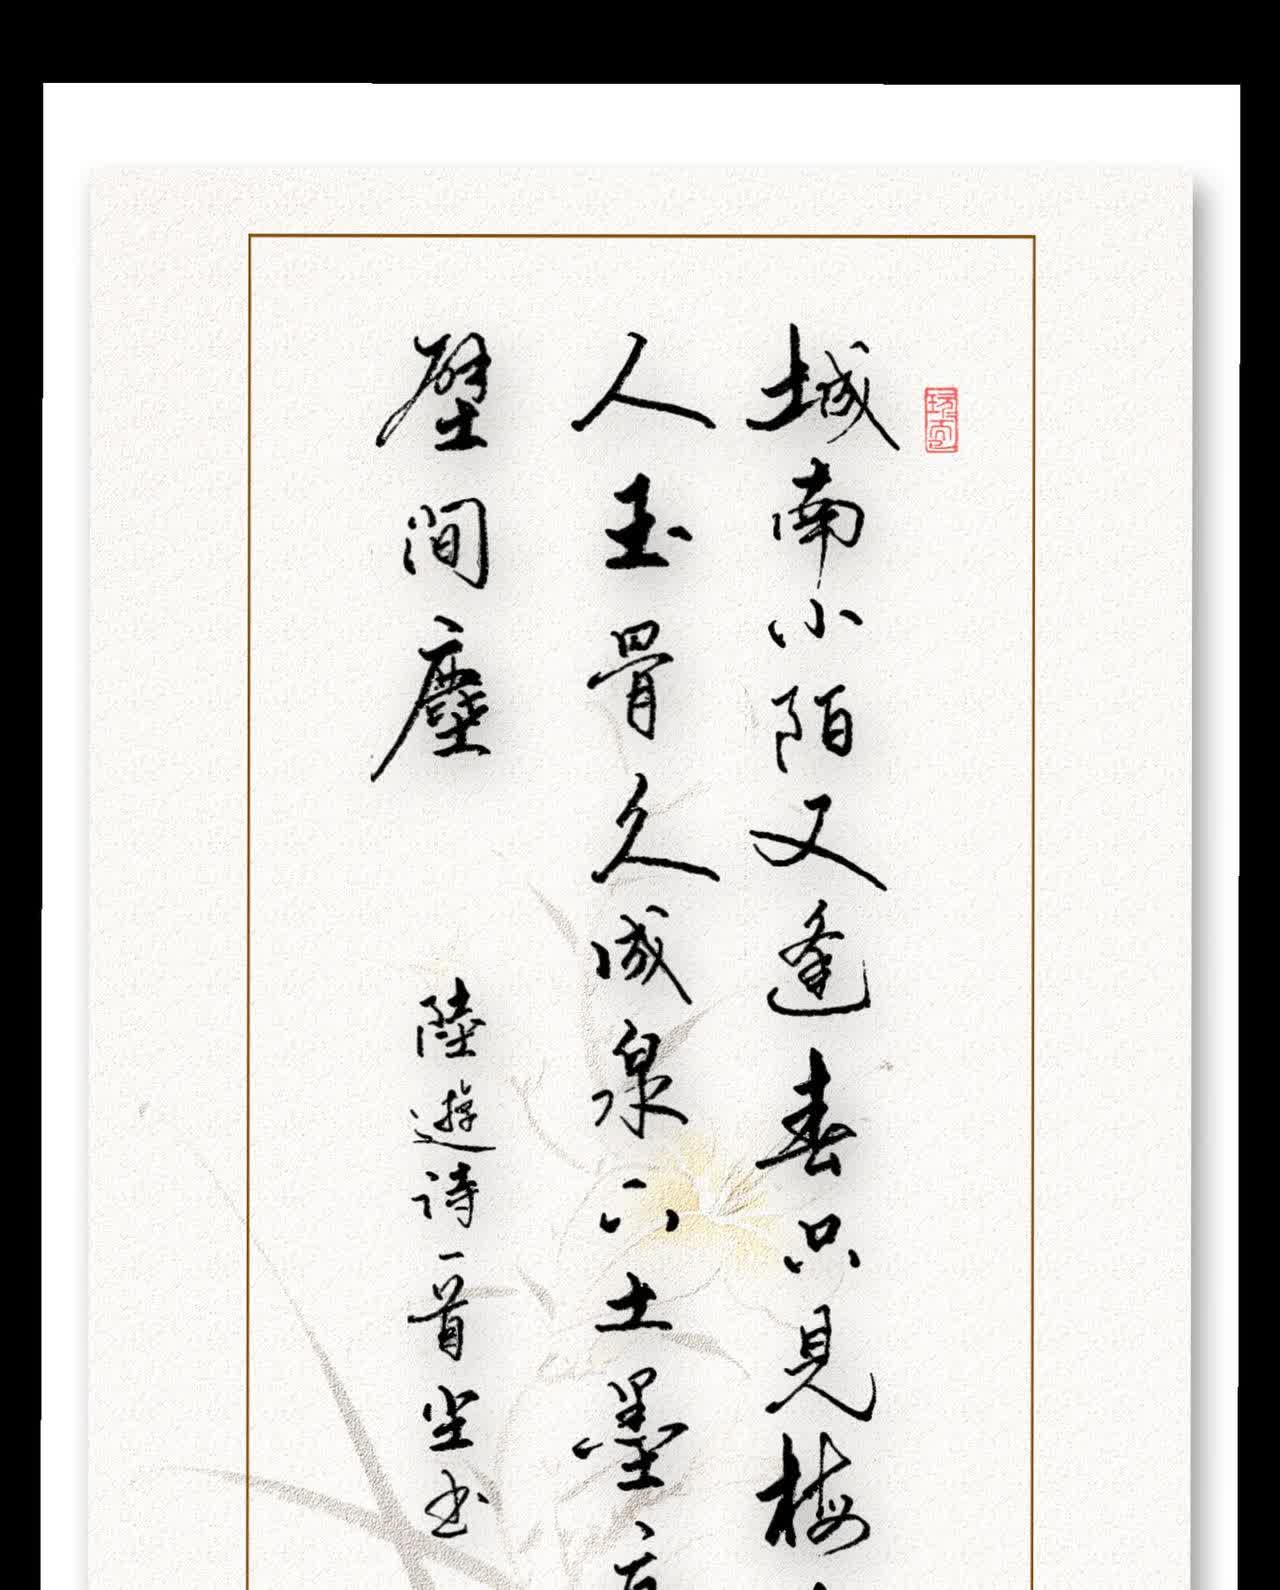 城南小陌又逢春只見梅
人玉骨久成泉下土墨
壁間塵
陸遊诗一首书